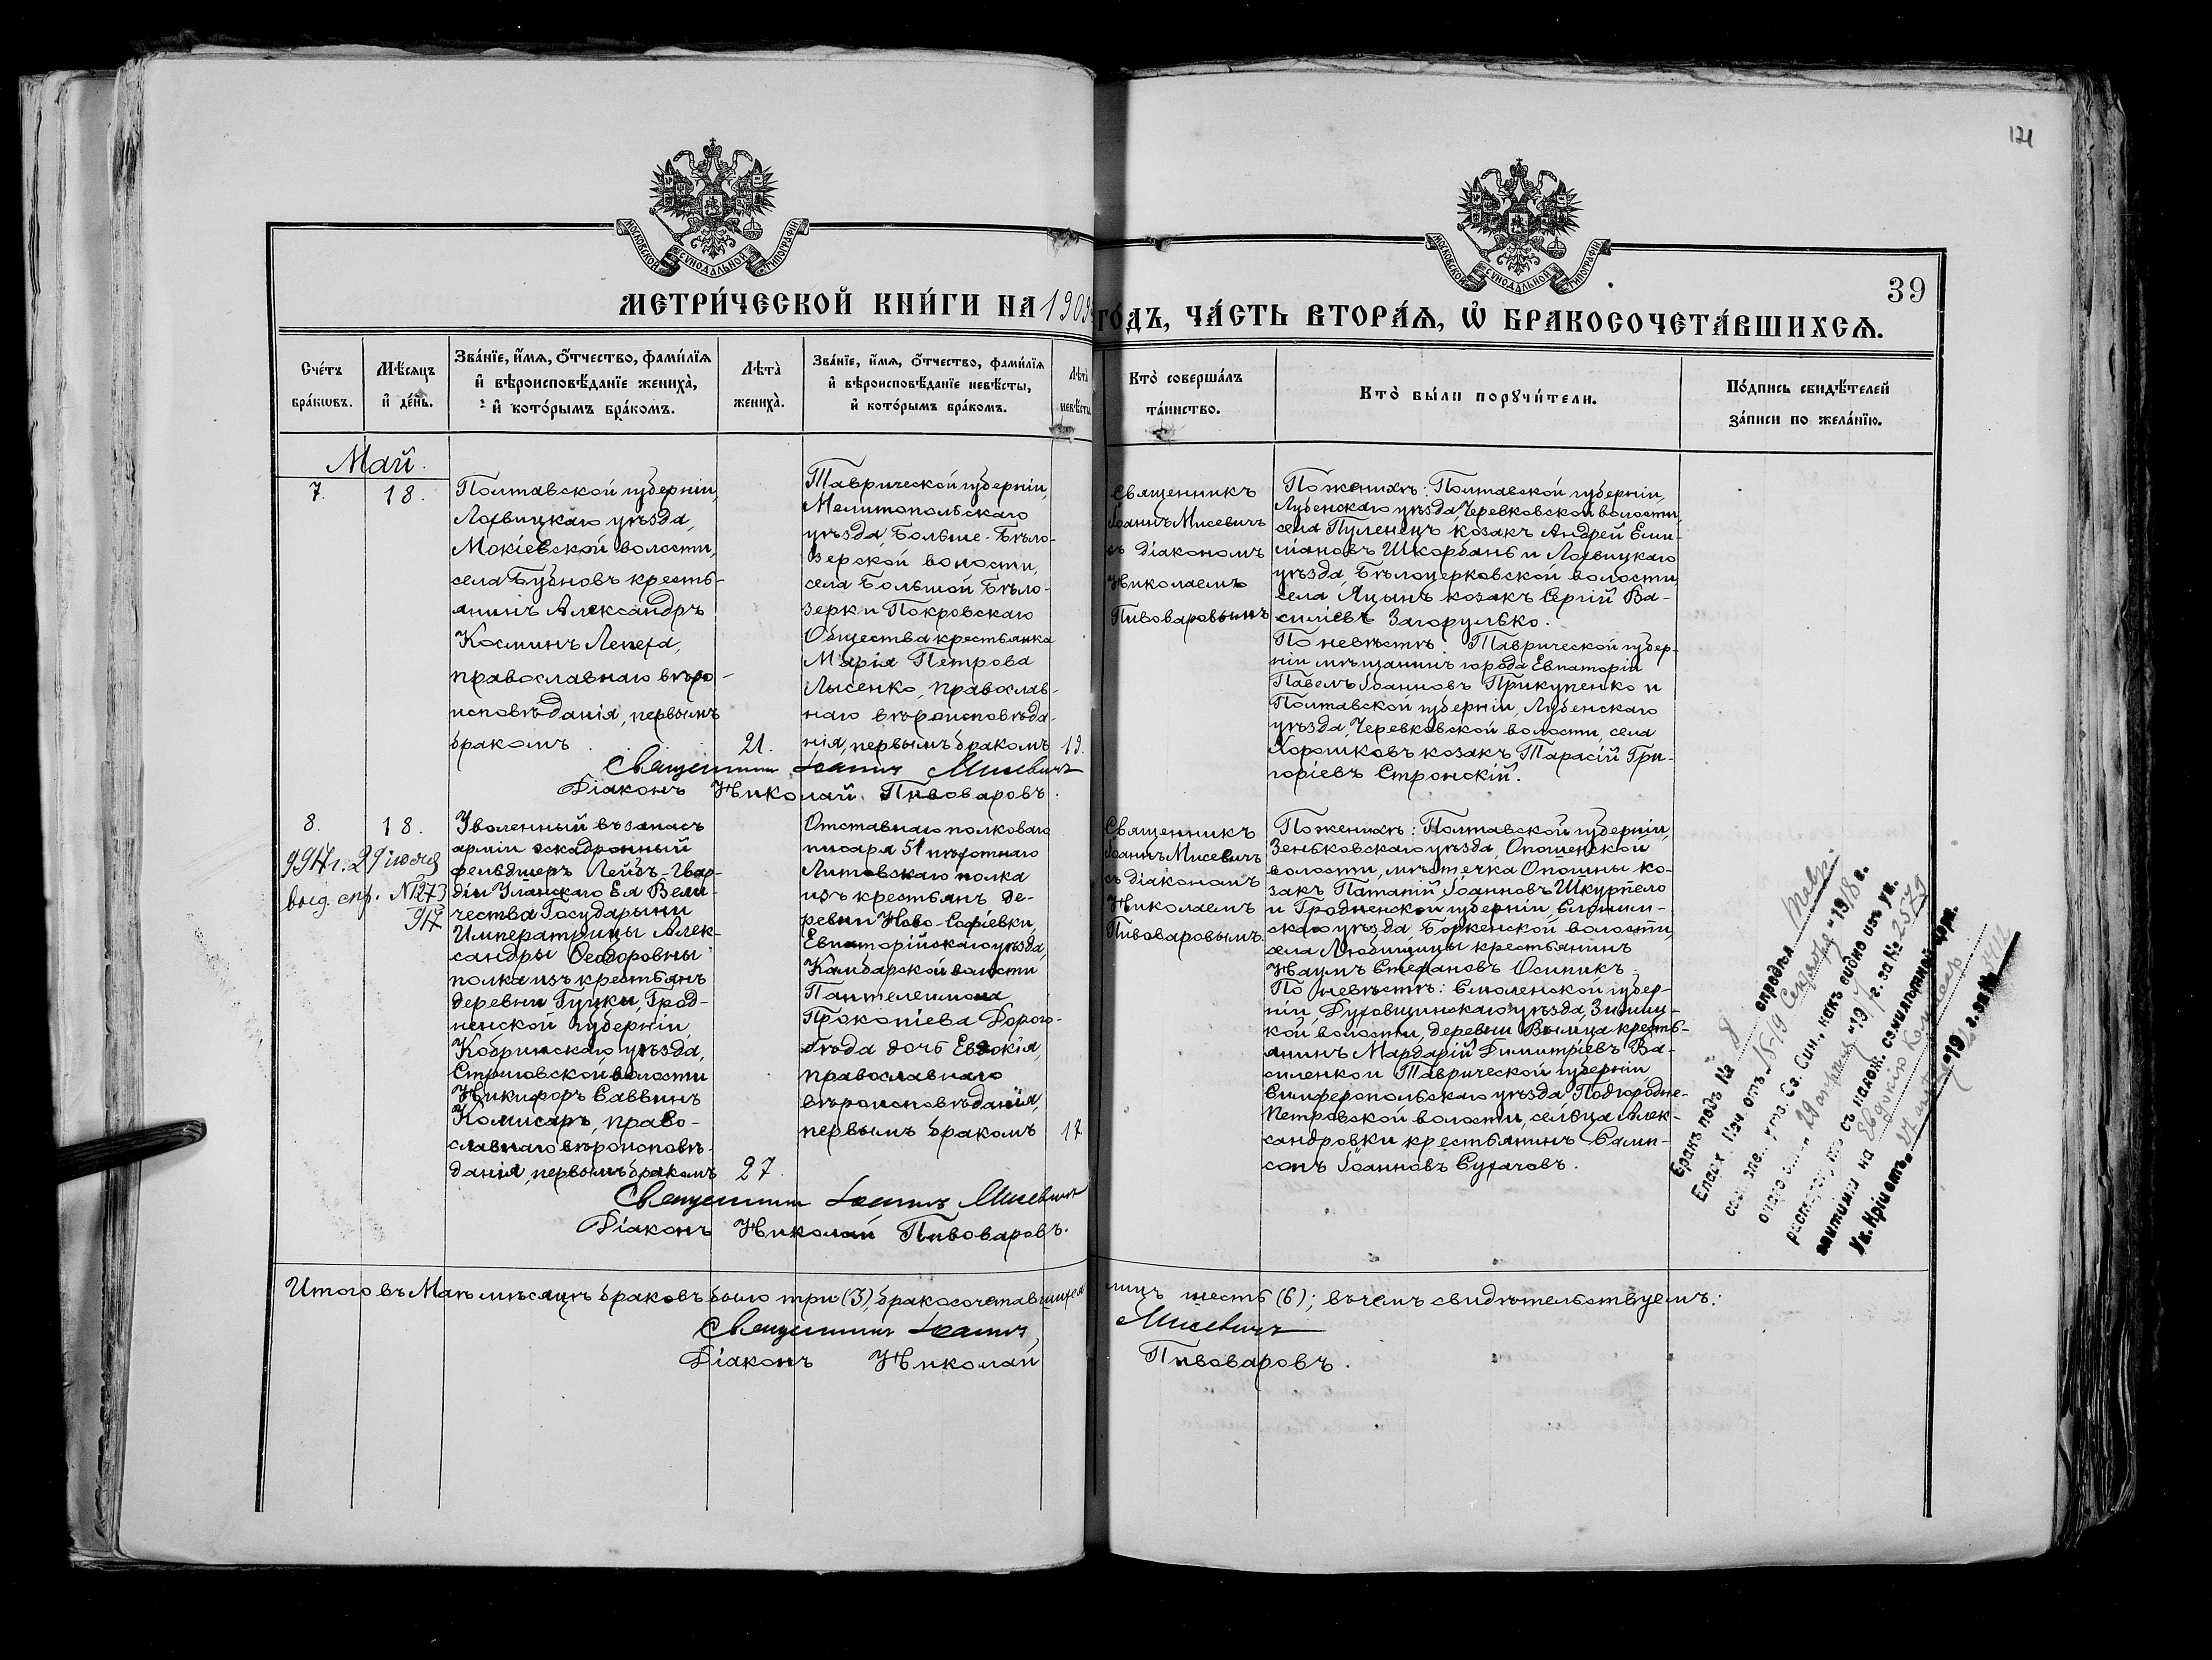 121
МОСКОВСКОЙ СѴНОДАЛЬНОЙ ТИПОГРАФІИ
МОСКОВСКОЙ СѴНОДАЛЬНОЙ ТИПОГРАФІИ
39
МЕТРИ́ЧЕСКОЙ КНИ́ГИ НА 1909
ГО́ДЪ, ЧА́СТЬ ВТОРА́Ѧ, Ѡ҆ БРАКОСОЧЕТА́ВШИХСѦ.
Сче́тъ
бра́кѡвъ.
Мѣ́сяцъ
и҆ де́нь.
Зва́нїе, и҆́мѧ, ѻ҆́тчество, фами́лїѧ
и҆ вѣроисповѣ́данїе жениха̀,
и҆ кото́рымъ бра́комъ.
Лѣта̀
жениха̀.
Зва́нїе, и҆́мѧ, ѻ҆́тчество, фами́лїѧ
и҆ вѣроисповѣ́данїе невѣ́сты,
и҆ кото́рымъ бра́комъ.
Лѣта̀
невѣ́сты
Кто̀ соверша́лъ
та́инство.
Кто̀ бы́ли порꙋчи́тели.
По́дпись свидѣ́телей
за́писи по жела́нїю.
Май.
7.
18.
Полтавской губерніи,
Лохвицкаго уѣзда,
Мокіевской волости,
села Бубновъ кресть-
янинъ Александръ
Косминъ Лепеха,
православнаго вѣро-
исповѣданія, первымъ
бракомъ
21.
Таврической губерніи,
Мелитопольскаго
уѣзда, Больше-Бѣло-
зерской волости,
села Большой Бѣло-
зерки Покровскаго
Общества крестьянка
Марія Петрова
Лысенко, православ-
наго вѣроисповѣда-
нія, первымъ бракомъ
19.
Священникъ
Іоаннъ Мисевичъ
съ діакономъ
Николаемъ
Пивоваровымъ
По женихѣ: Полтавской губерніи,
Лубенскаго уѣзда, Черевковской волости,
села Пуленецъ козакъ Андрей Еми-
ліановъ Шкорбань и Лохвицкаго
уѣзда, Бѣлоцерковской волости,
села Яцынъ козакъ Сергій Ва-
силіевъ Загорулько.
По невѣстѣ: Таврической губер-
ніи мѣщанинъ города Евпаторіи
Павелъ Іоанновъ Прикупенко и
Полтавской губерніи, Лубенскаго
уѣзда, Черевковской волости, села
Хорошковъ козакъ Тарасій Гри-
горіевъ Стронскій.
Священникъ Іоаннъ Мисевичъ
Діаконъ Николай Пивоваровъ.
8.
18.
917 г. 29 іюня
выд. спр. № 1273
917
Уволенный въ запасъ
арміи эскадронный
фельдшеръ Лейбъ-Гвар-
діи Уланскаго Ея Вели-
чества Государыни
Императрицы Алек-
сандры Ѳеодоровны
полка изъ крестьянъ
деревни Гуцки, Грод-
ненской губерніи,
Кобринскаго уѣзда,
волости
Никифоръ Саввинъ
Комисаръ, право-
славнаго вѣроисповѣ-
данія, первымъ бракомъ
27.
Отставнаго полковаго
писаря 51 пѣхотнаго
Литовскаго полка
изъ крестьянъ де-
ревни Ново-Софіевки,
Евпаторійскаго уѣзда,
Камбарской волости
Пантелеимона
Прокопіева Дорого-
бѣда дочь Евдокія,
православнаго
вѣроисповѣданія,
первымъ бракомъ
17
Священникъ
Іоаннъ Мисевичъ
съ діакономъ
Николаемъ
Пивоваровымъ.
По женихѣ: Полтавской губерніи,
Зеньковскаго уѣзда, Опошенской
волости, мѣстечка Опошны ко-
закъ Іоанновъ Шкурпело
и Гродненской губерніи, Слоним-
скаго уѣзда, Боркенской волости,
села Любищицы крестьянинъ
Наумъ Стефановъ Осиникъ.
По невѣстѣ: Смоленской губер-
ніи, Духовщинскаго уѣзда,
кой волости, деревни кресть-
янинъ Мардарій Димитріевъ Ва-
силенко и Таврической губерніи
Симферопольскаго уѣзда Подгородне-
Петровской волости, сельца Алек-
сандровки крестьянинъ Самп-
сонъ Іоанновъ Сухачовъ.
Бракъ подъ № 8 опредѣл. Тавр.
Епарх. Нач. отъ 18-19 Сентября 1918 г.
какъ видно изъ ук.
г. за № 2579
съ налож. семилѣтней
епитиміи на Евдокію Комисаръ
Священникъ Іоаннъ Мисевичъ
Діаконъ Николай Пивоваровъ.
Итого въ Маѣ мѣсяцѣ браковъ было три (3), бракосочетавшихся лицъ шесть (6); въ чемъ свидѣтельствуемъ:
Священникъ Іоаннъ Мисевичъ
Діаконъ Николай Пивоваровъ.